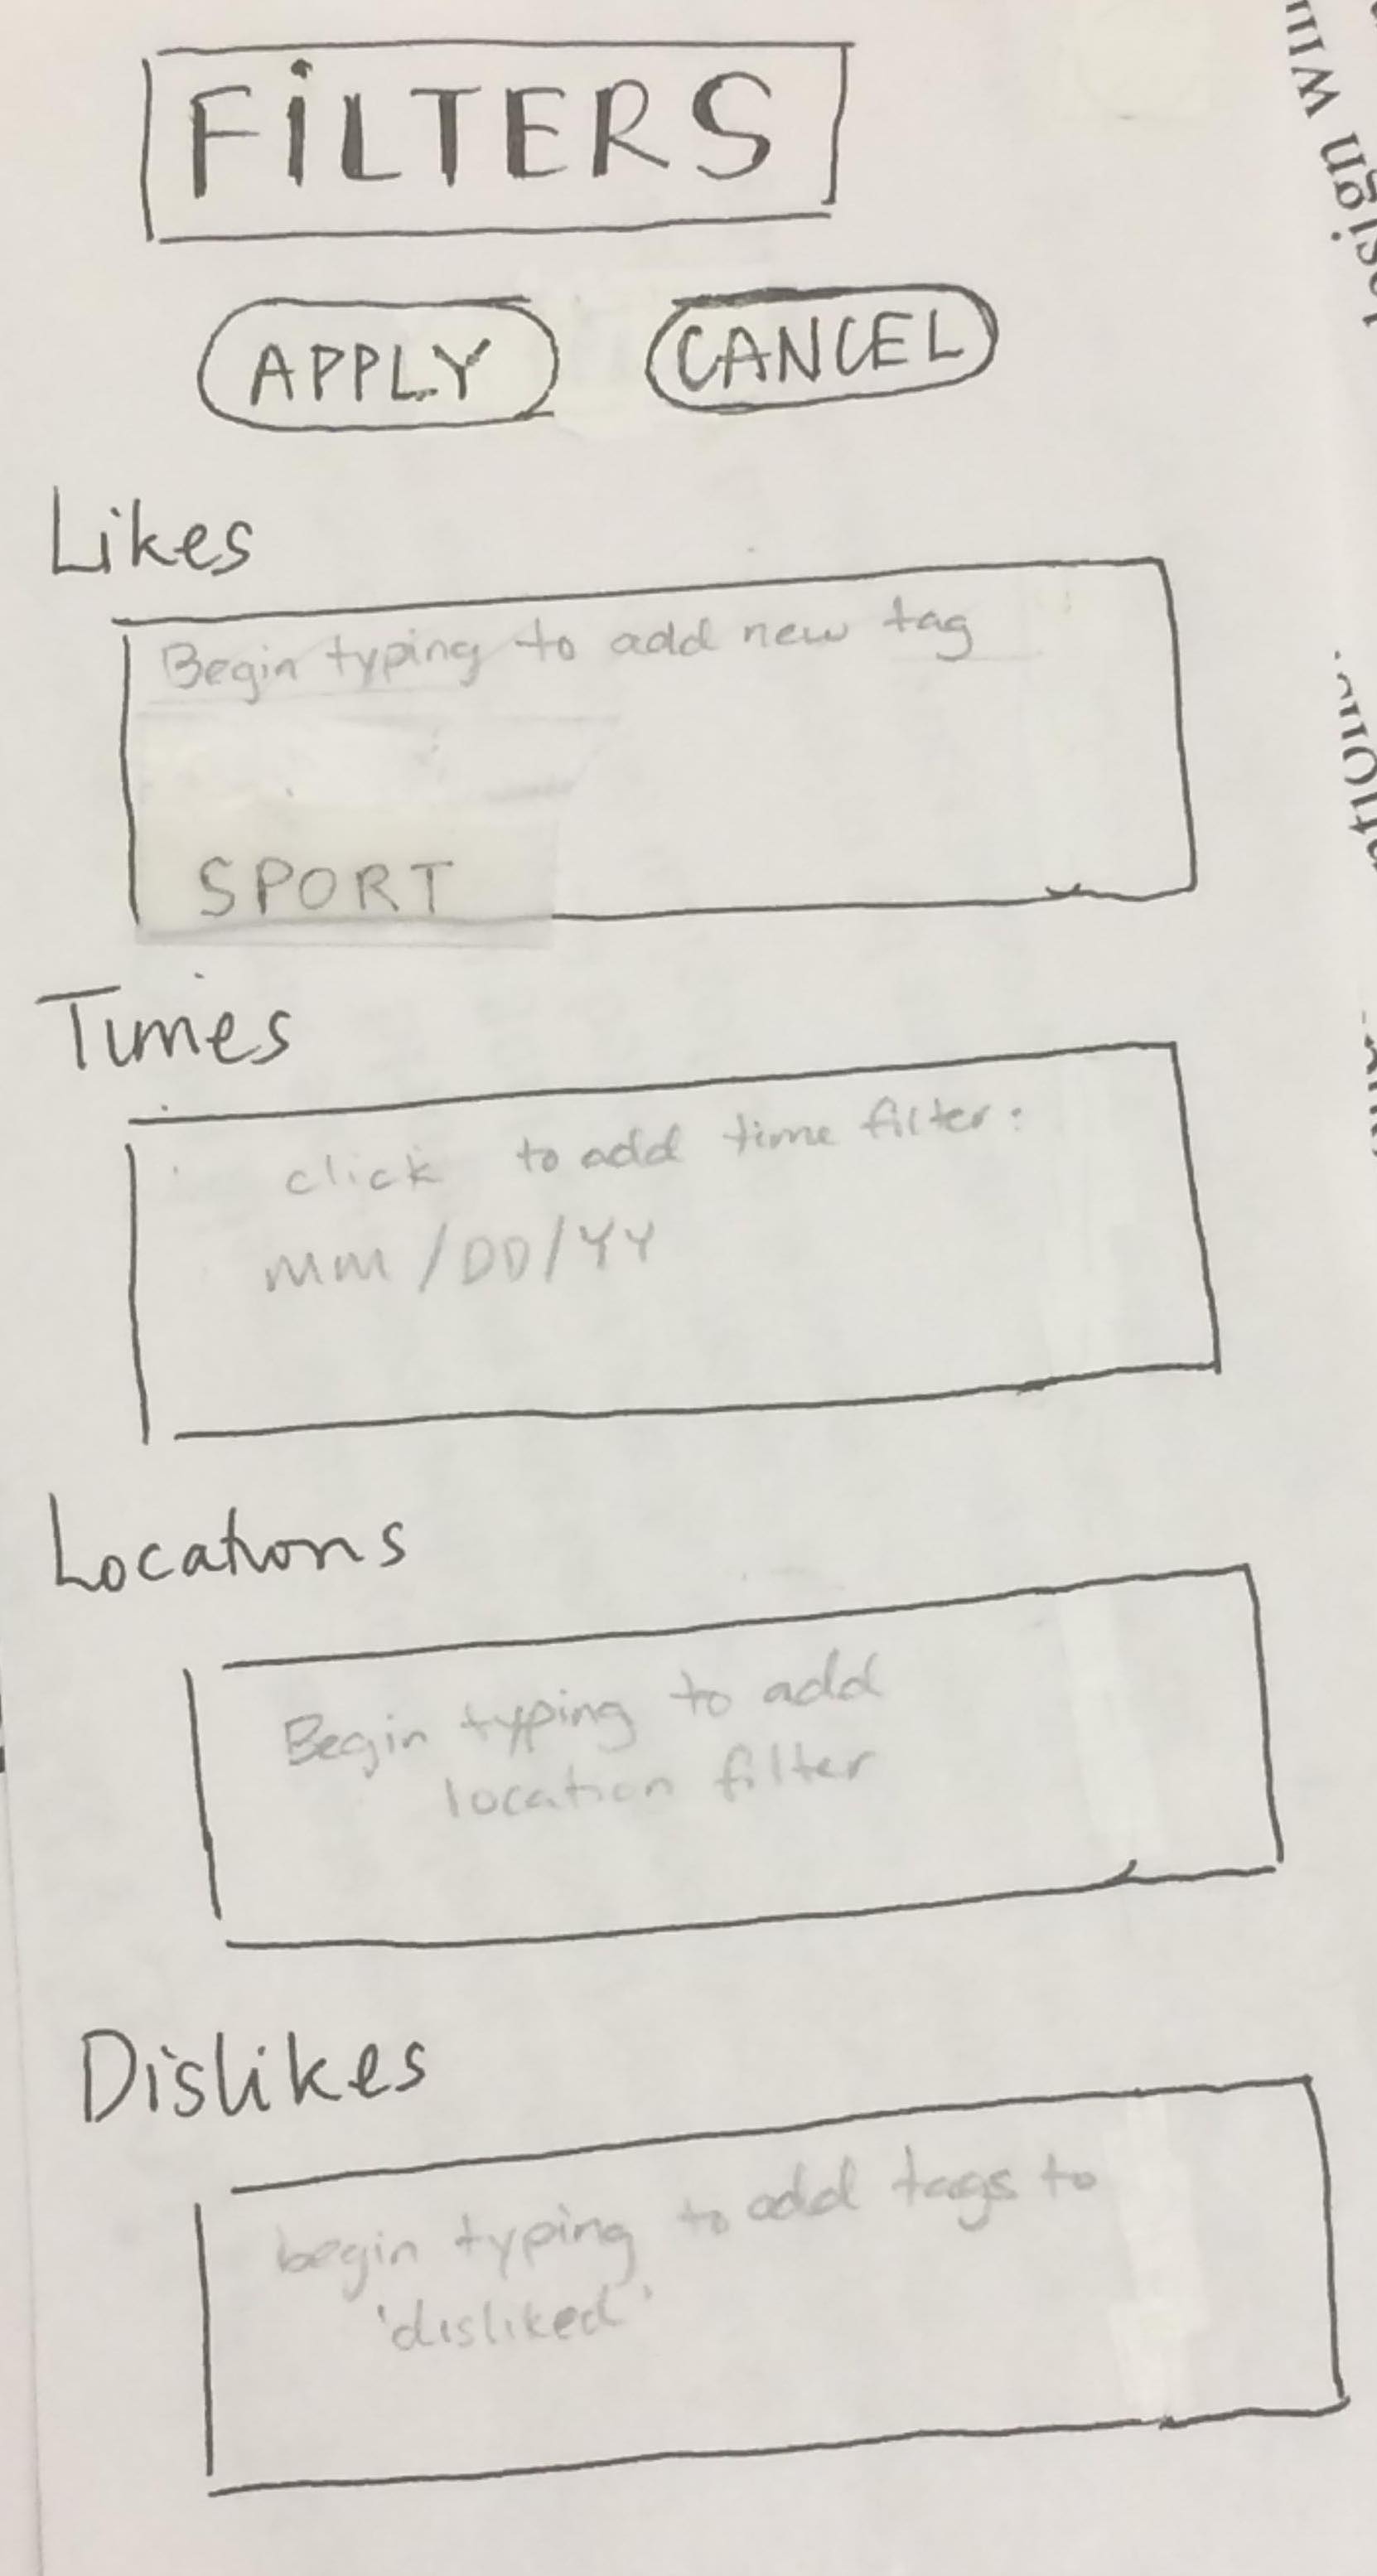 FiLTERS
APPLY CANCEL
Likes
Begin typing to add new tag
SPORT
Times
click to add time filter:
MM/DD/YY
Locations
Begin typing to add
location filter
Dislikes
begin typing to add tags to
'disliked'